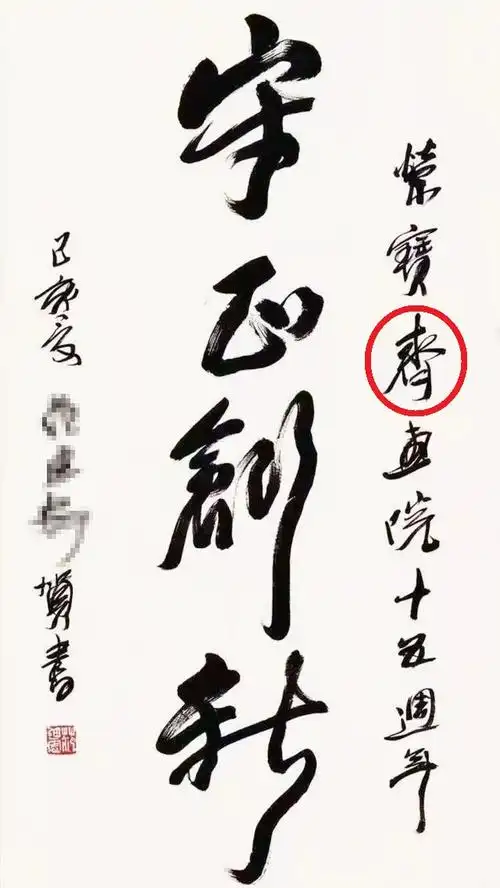 榮寶齊畫院十五週年
守正創新
己亥夏
賀書